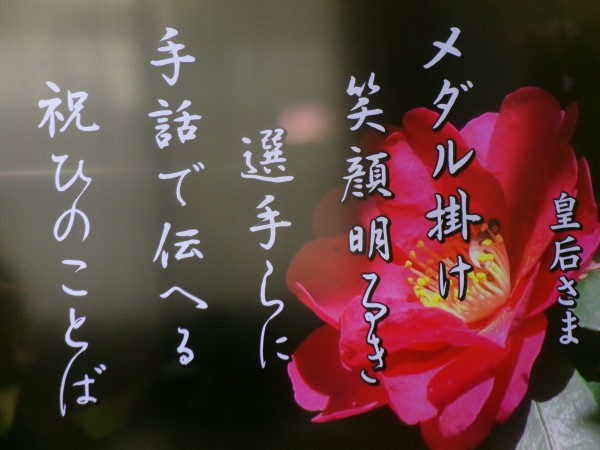 皇后さま
メダル掛け
笑顔明るき
選手らに
手話で伝へる
祝ひのことば